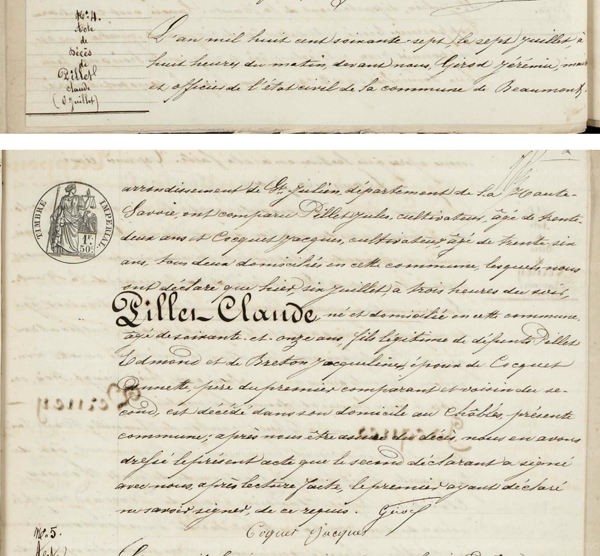 N°. 4.
Acte
de
Décès
de
Pillet
Claude
(6 juillet)
L'an mil huit cent soixante-sept, le sept juillet, à
huit heures du matin, devant nous, Girod Jérémie, maire
et officier de l'état civil de la commune de Beaumont,
TIMBRE IMPERIAL
1F
50c
arrondissement de St Julien, département de la Haute-
Savoie, ont comparu Pillet Jules, cultivateur, âgé de trente-
deux ans et Cocquet Jacques, cultivateur, âgé de trente six
ans, tous deux domiciliés en cette commune, lesquels nous
ont déclaré que hier, six juillet, à trois heures du soir,
Pillet Claude né et domicilié en cette commune
âgé de soixante et onze ans, fils légitime de défunts Pillet
Edmond et de Breton Jacqueline, époux de Cocquet
Annette, père du premier comparant et voisin du se
cond, est décédé dans son domicile au Châble, présente
commune; après nous être assuré du décès, nous en avons
dressé le présent acte que le second déclarant a signé
avec nous, après lecture faite, le premier ayant déclaré
ne savoir signer, de ce requis. Girod
Coquet Jacques
N°. 5.